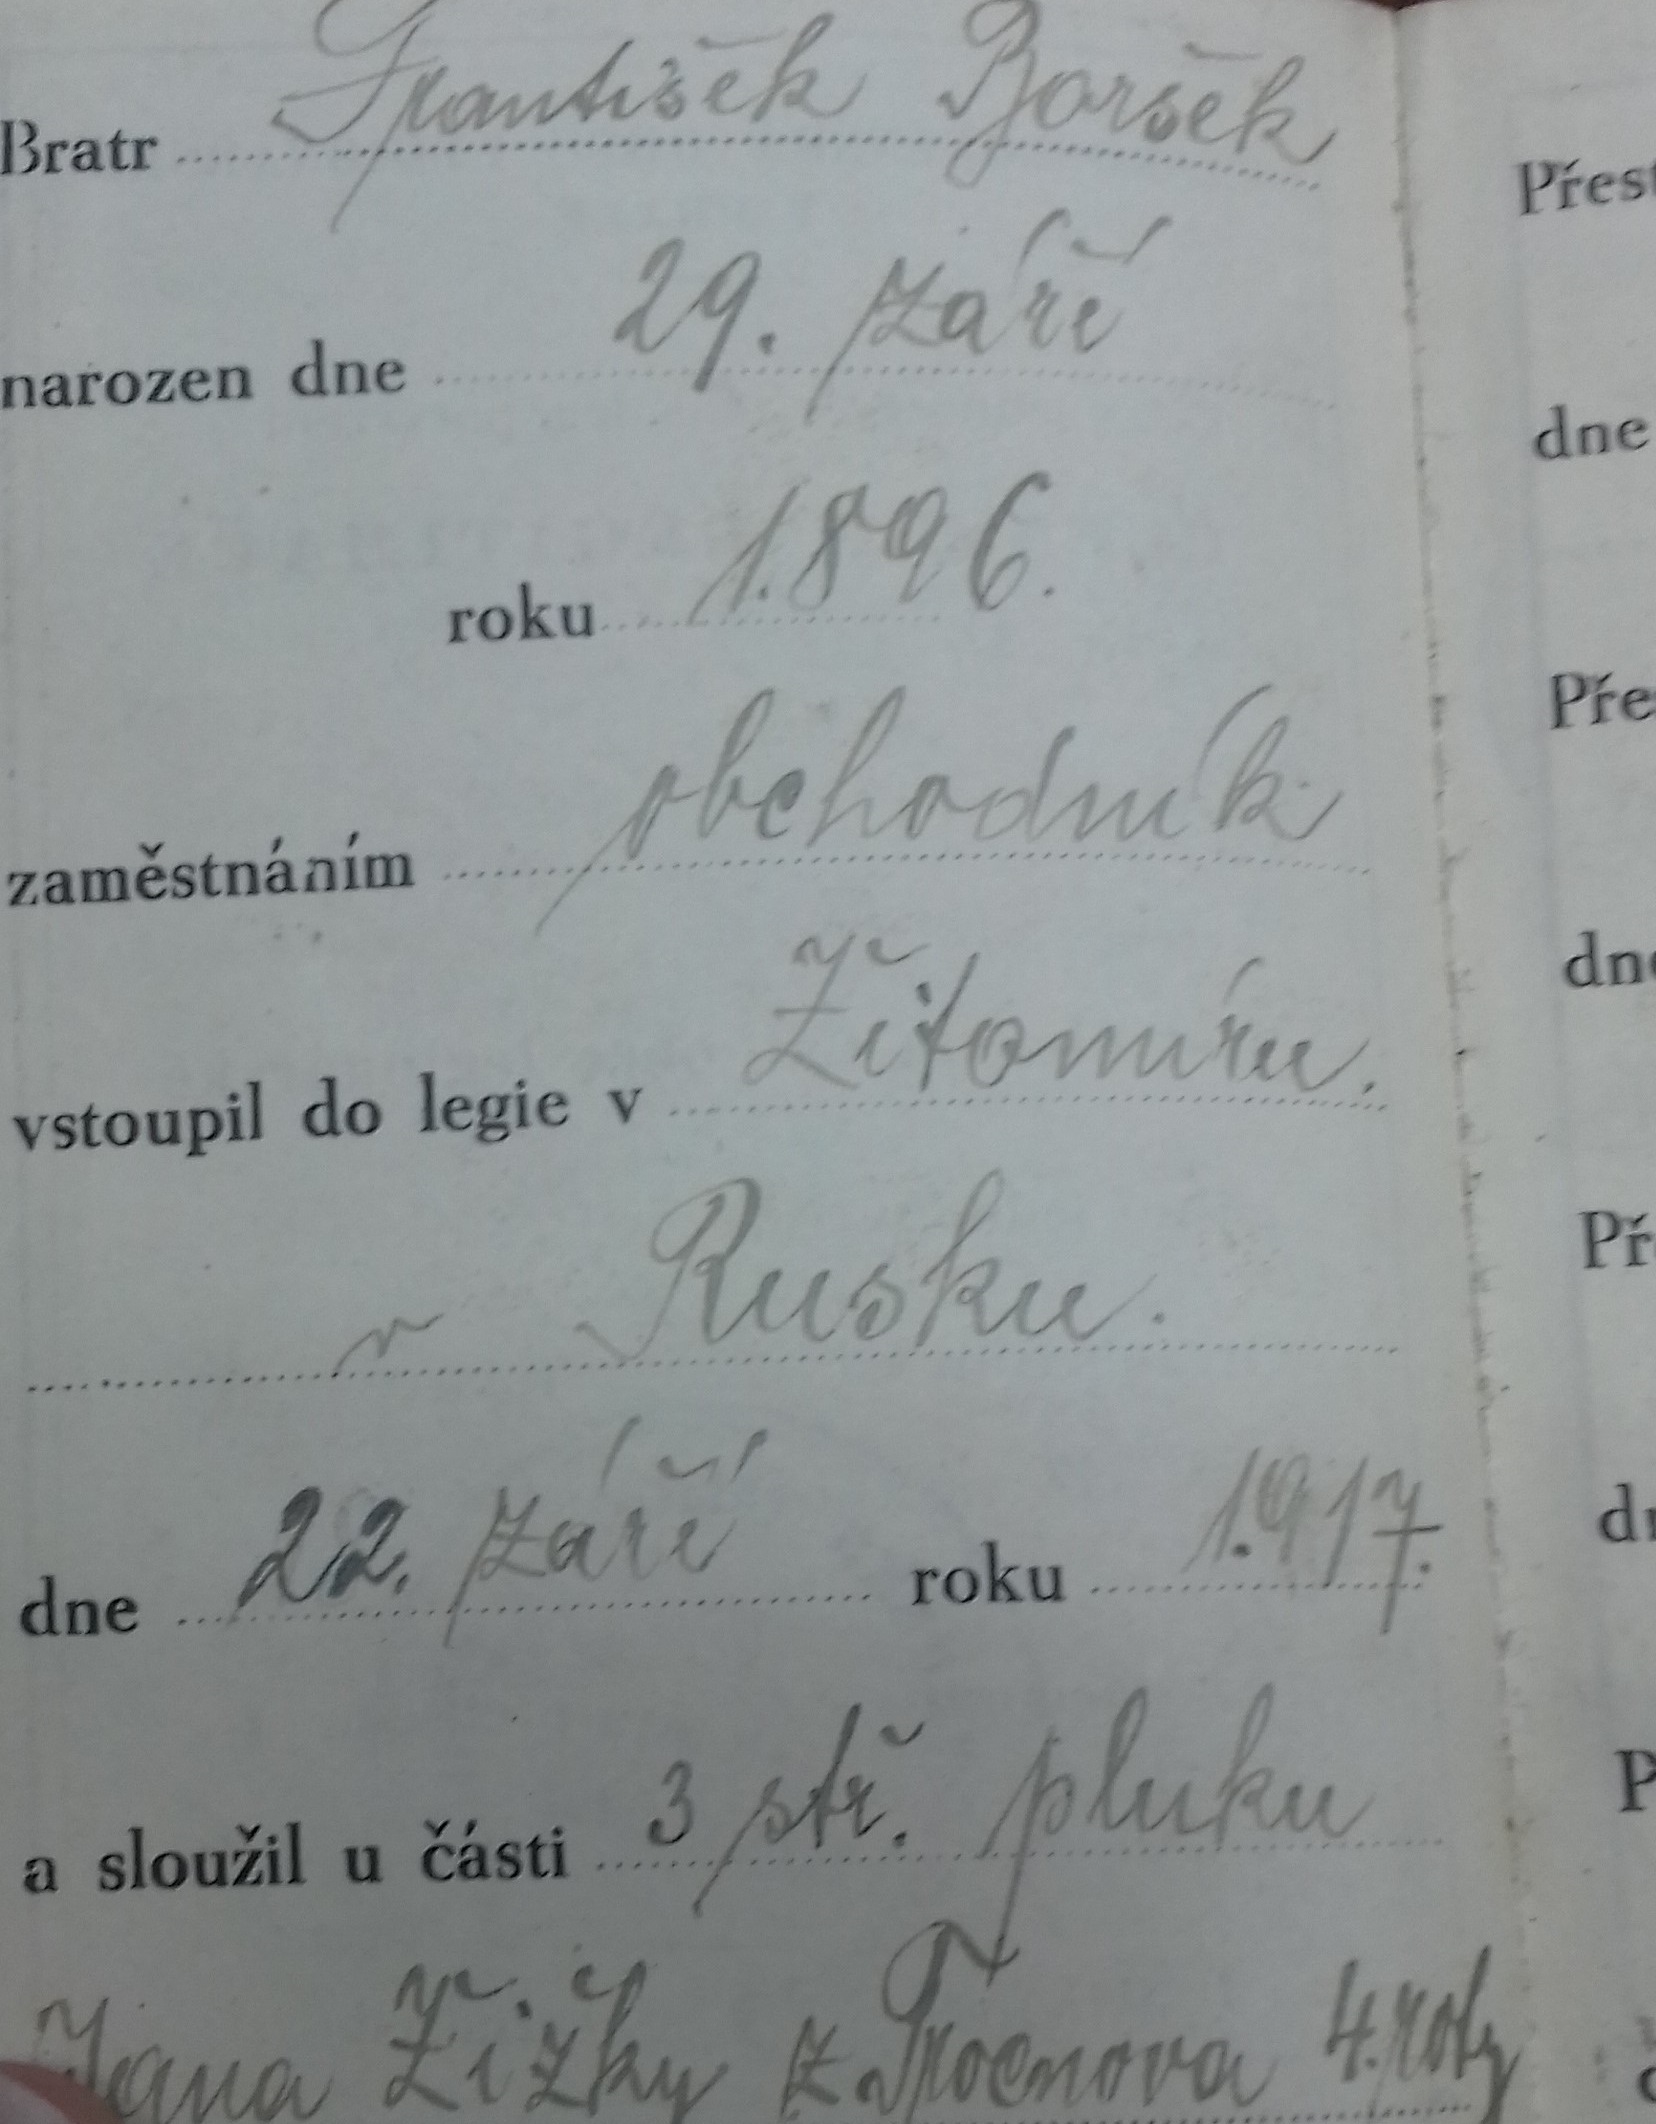 Bratr František Boršek
narozen dne 29. září
roku 1.896.
zaměstnáním obchodník
vstoupil do legie v Žitomíru.
v Rusku.
dne 22. září roku 1.917.
a sloužil u části 3 stř. pluku
Jana Žižky z Trocnova 4. roty
Přest
dne
Pře
dne
Př
d
P